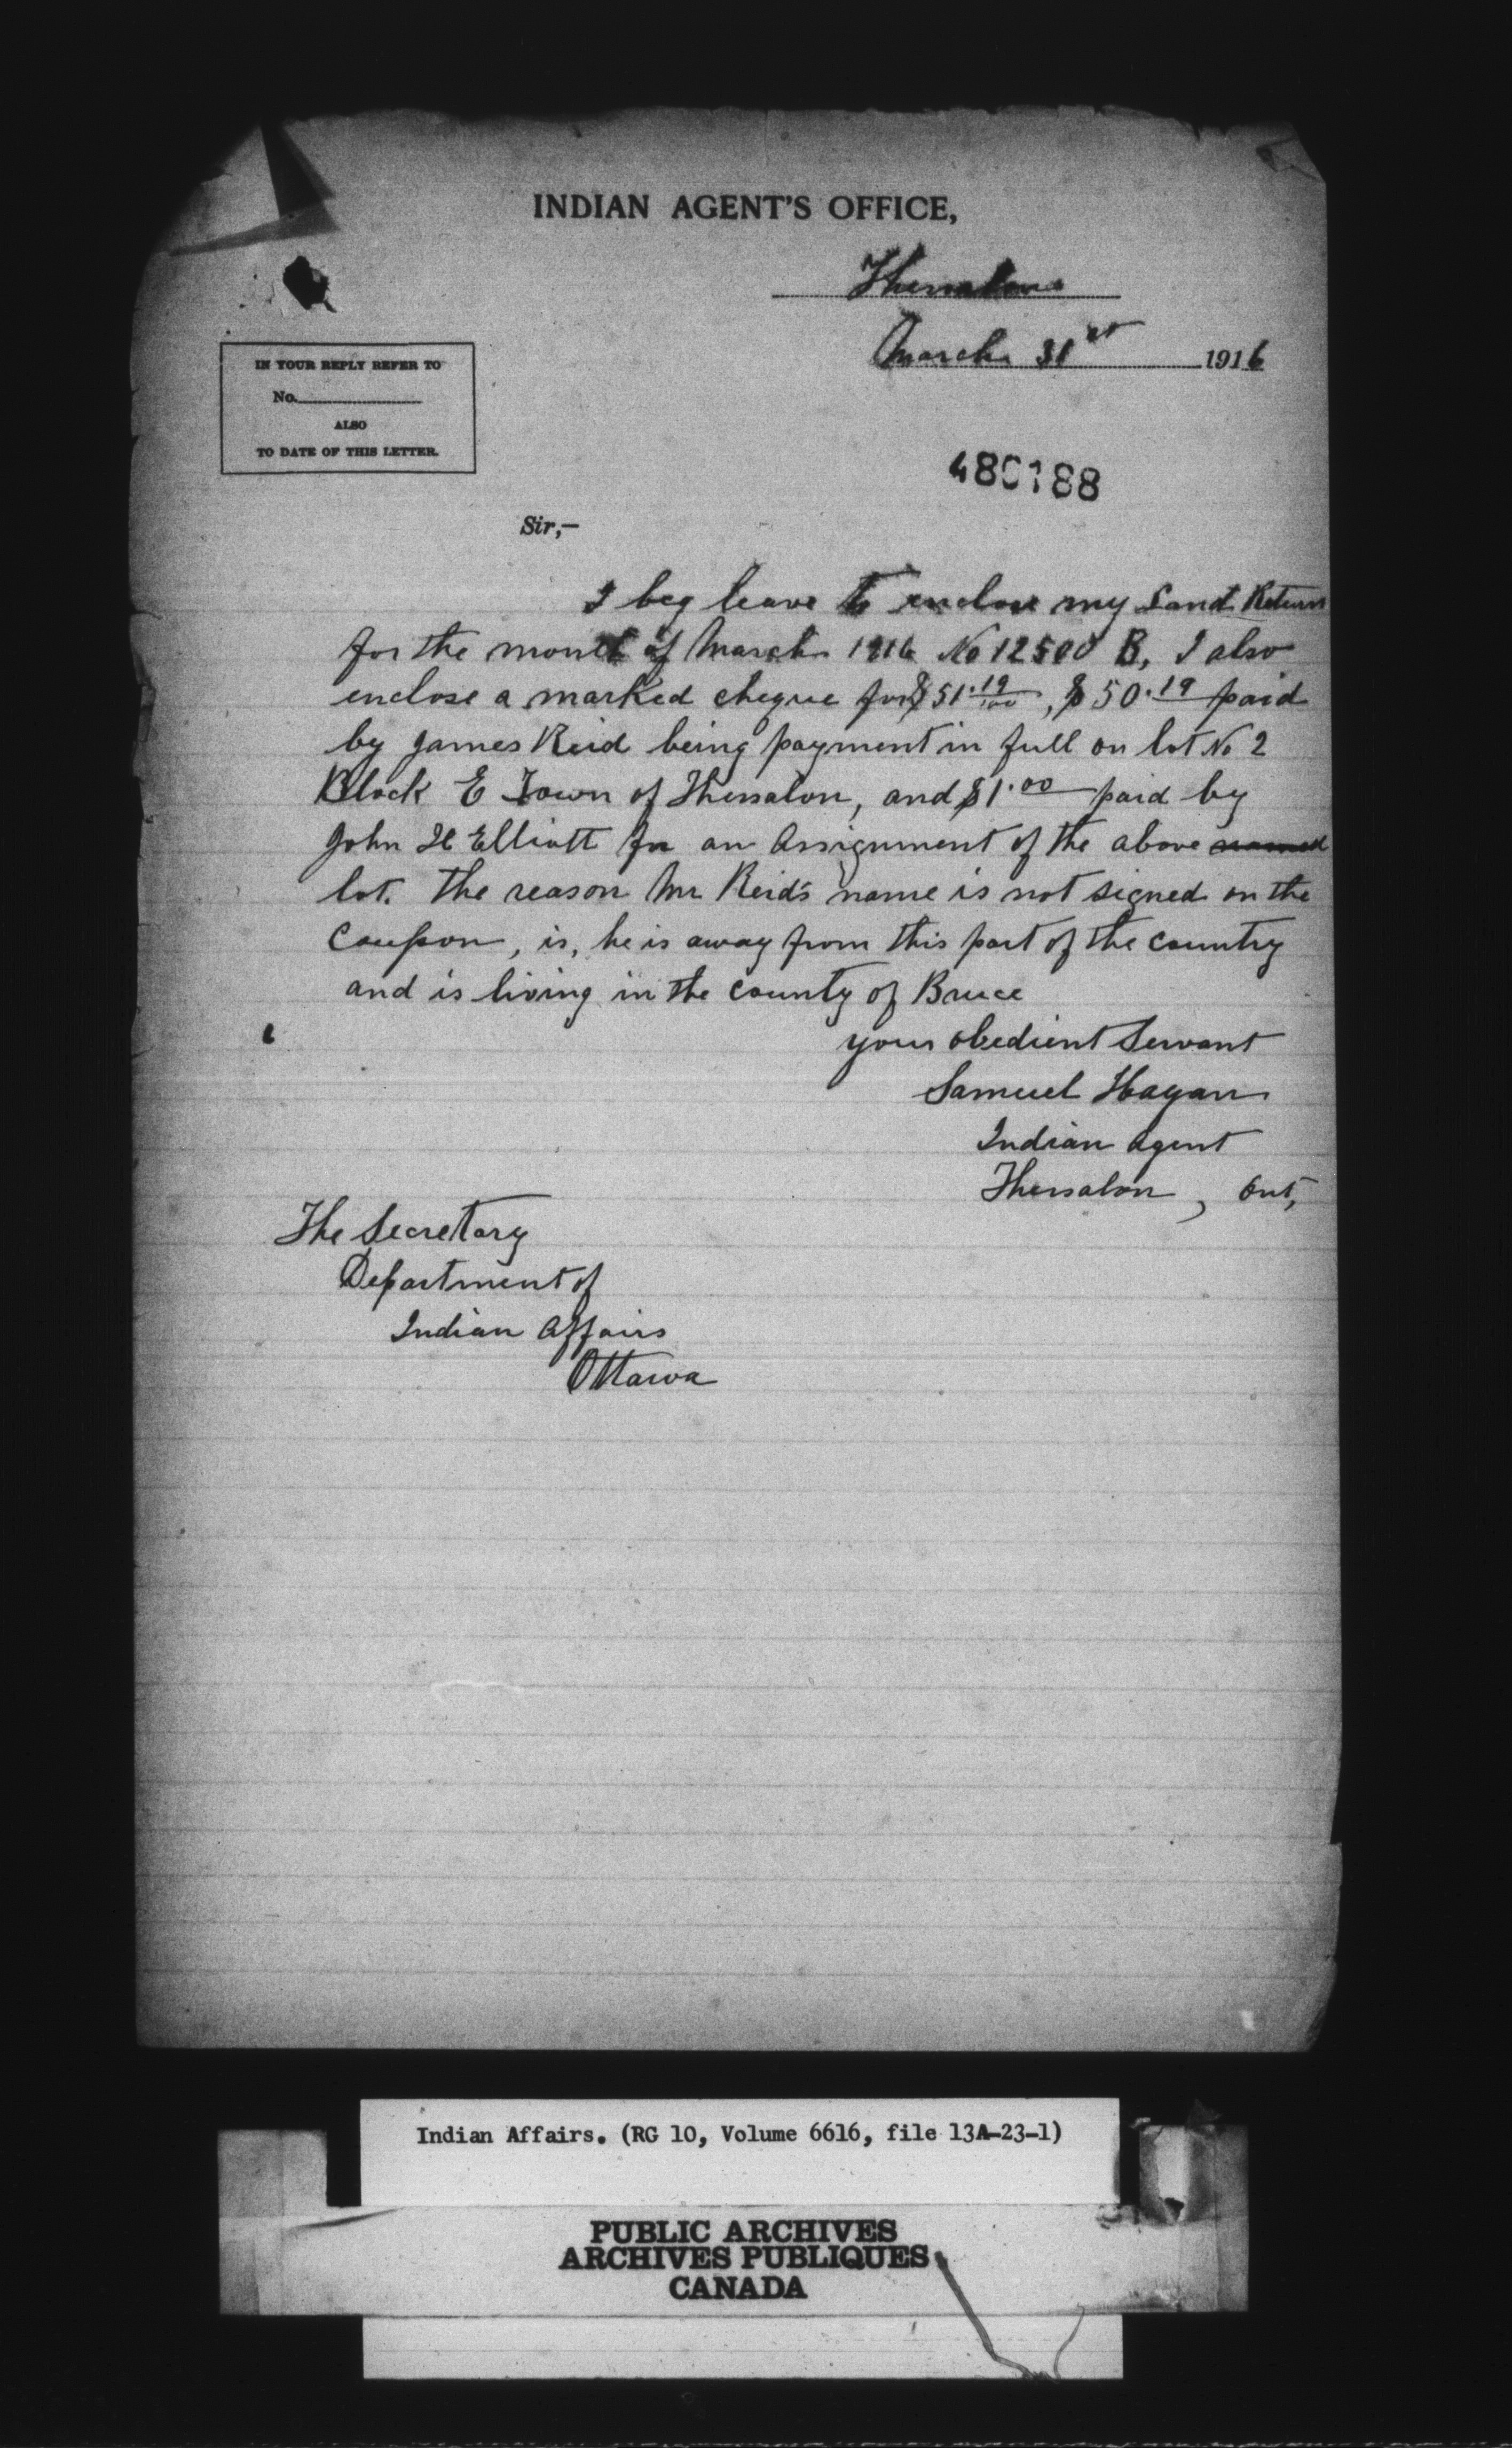 INDIAN AGENT'S OFFICE,
Thessalon
March 31st 1916
IN YOUR REPLY REFER TO
No.
ALSO
TO DATE OF THIS LETTER.
480188
Sir,—
I beg leave to enclose my Land Return
for the month of March 1916 No 12500 B, I also
enclose a marked cheque for $51.19/100, $50.19 paid
by James Reid being payment in full on lot No 2
Block E Town of Thessalon, and $1.00 paid by
John H Elliott for an Assignment of the above named
lot. The reason Mr Reid's name is not signed on the
Coupon, is, he is away from this part of the country
and is living in the county of Bruce
your obedient Servant
Samuel Hagan
Indian Agent
Thessalon, Ont,
The Secretary
Department of
Indian Affairs
Ottawa
Indian Affairs. (RG 10, Volume 6616, file 13A-23-1)
PUBLIC ARCHIVES
ARCHIVES PUBLIQUES
CANADA